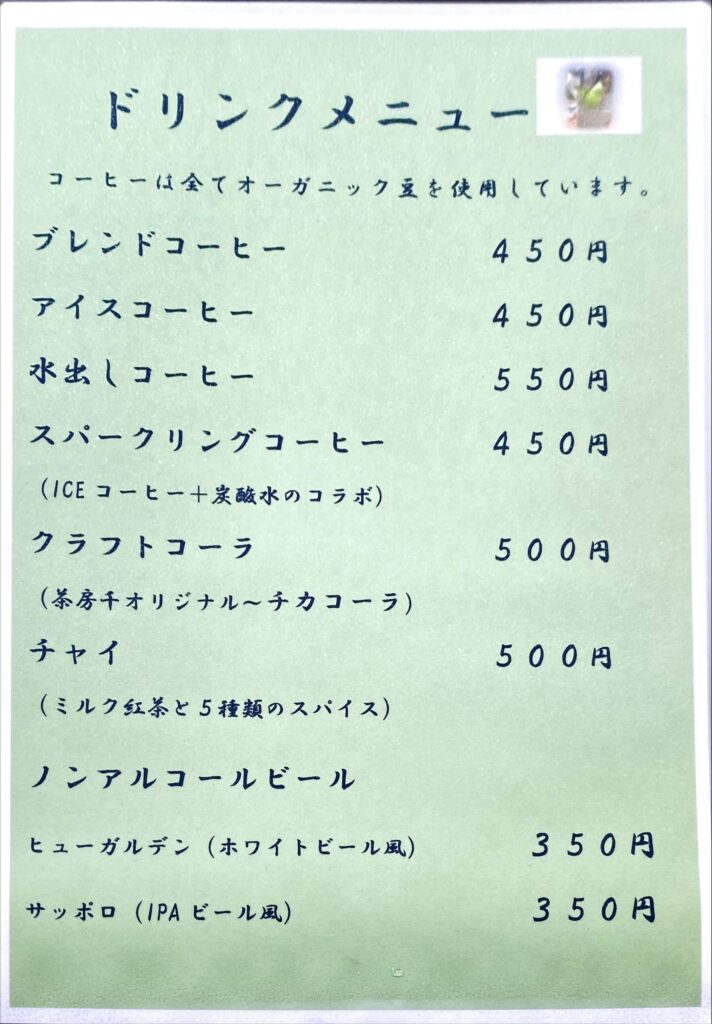 ドリンクメニュー
コーヒーは全てオーガニック豆を使用しています。
ブレンドコーヒー ４５０円
アイスコーヒー ４５０円
水出しコーヒー ５５０円
スパークリングコーヒー ４５０円
（ICEコーヒー＋炭酸水のコラボ）
クラフトコーラ ５００円
（茶房千オリジナル～チカコーラ）
チャイ ５００円
（ミルク紅茶と５種類のスパイス）
ノンアルコールビール
ヒューガルデン（ホワイトビール風） ３５０円
サッポロ（IPAビール風） ３５０円